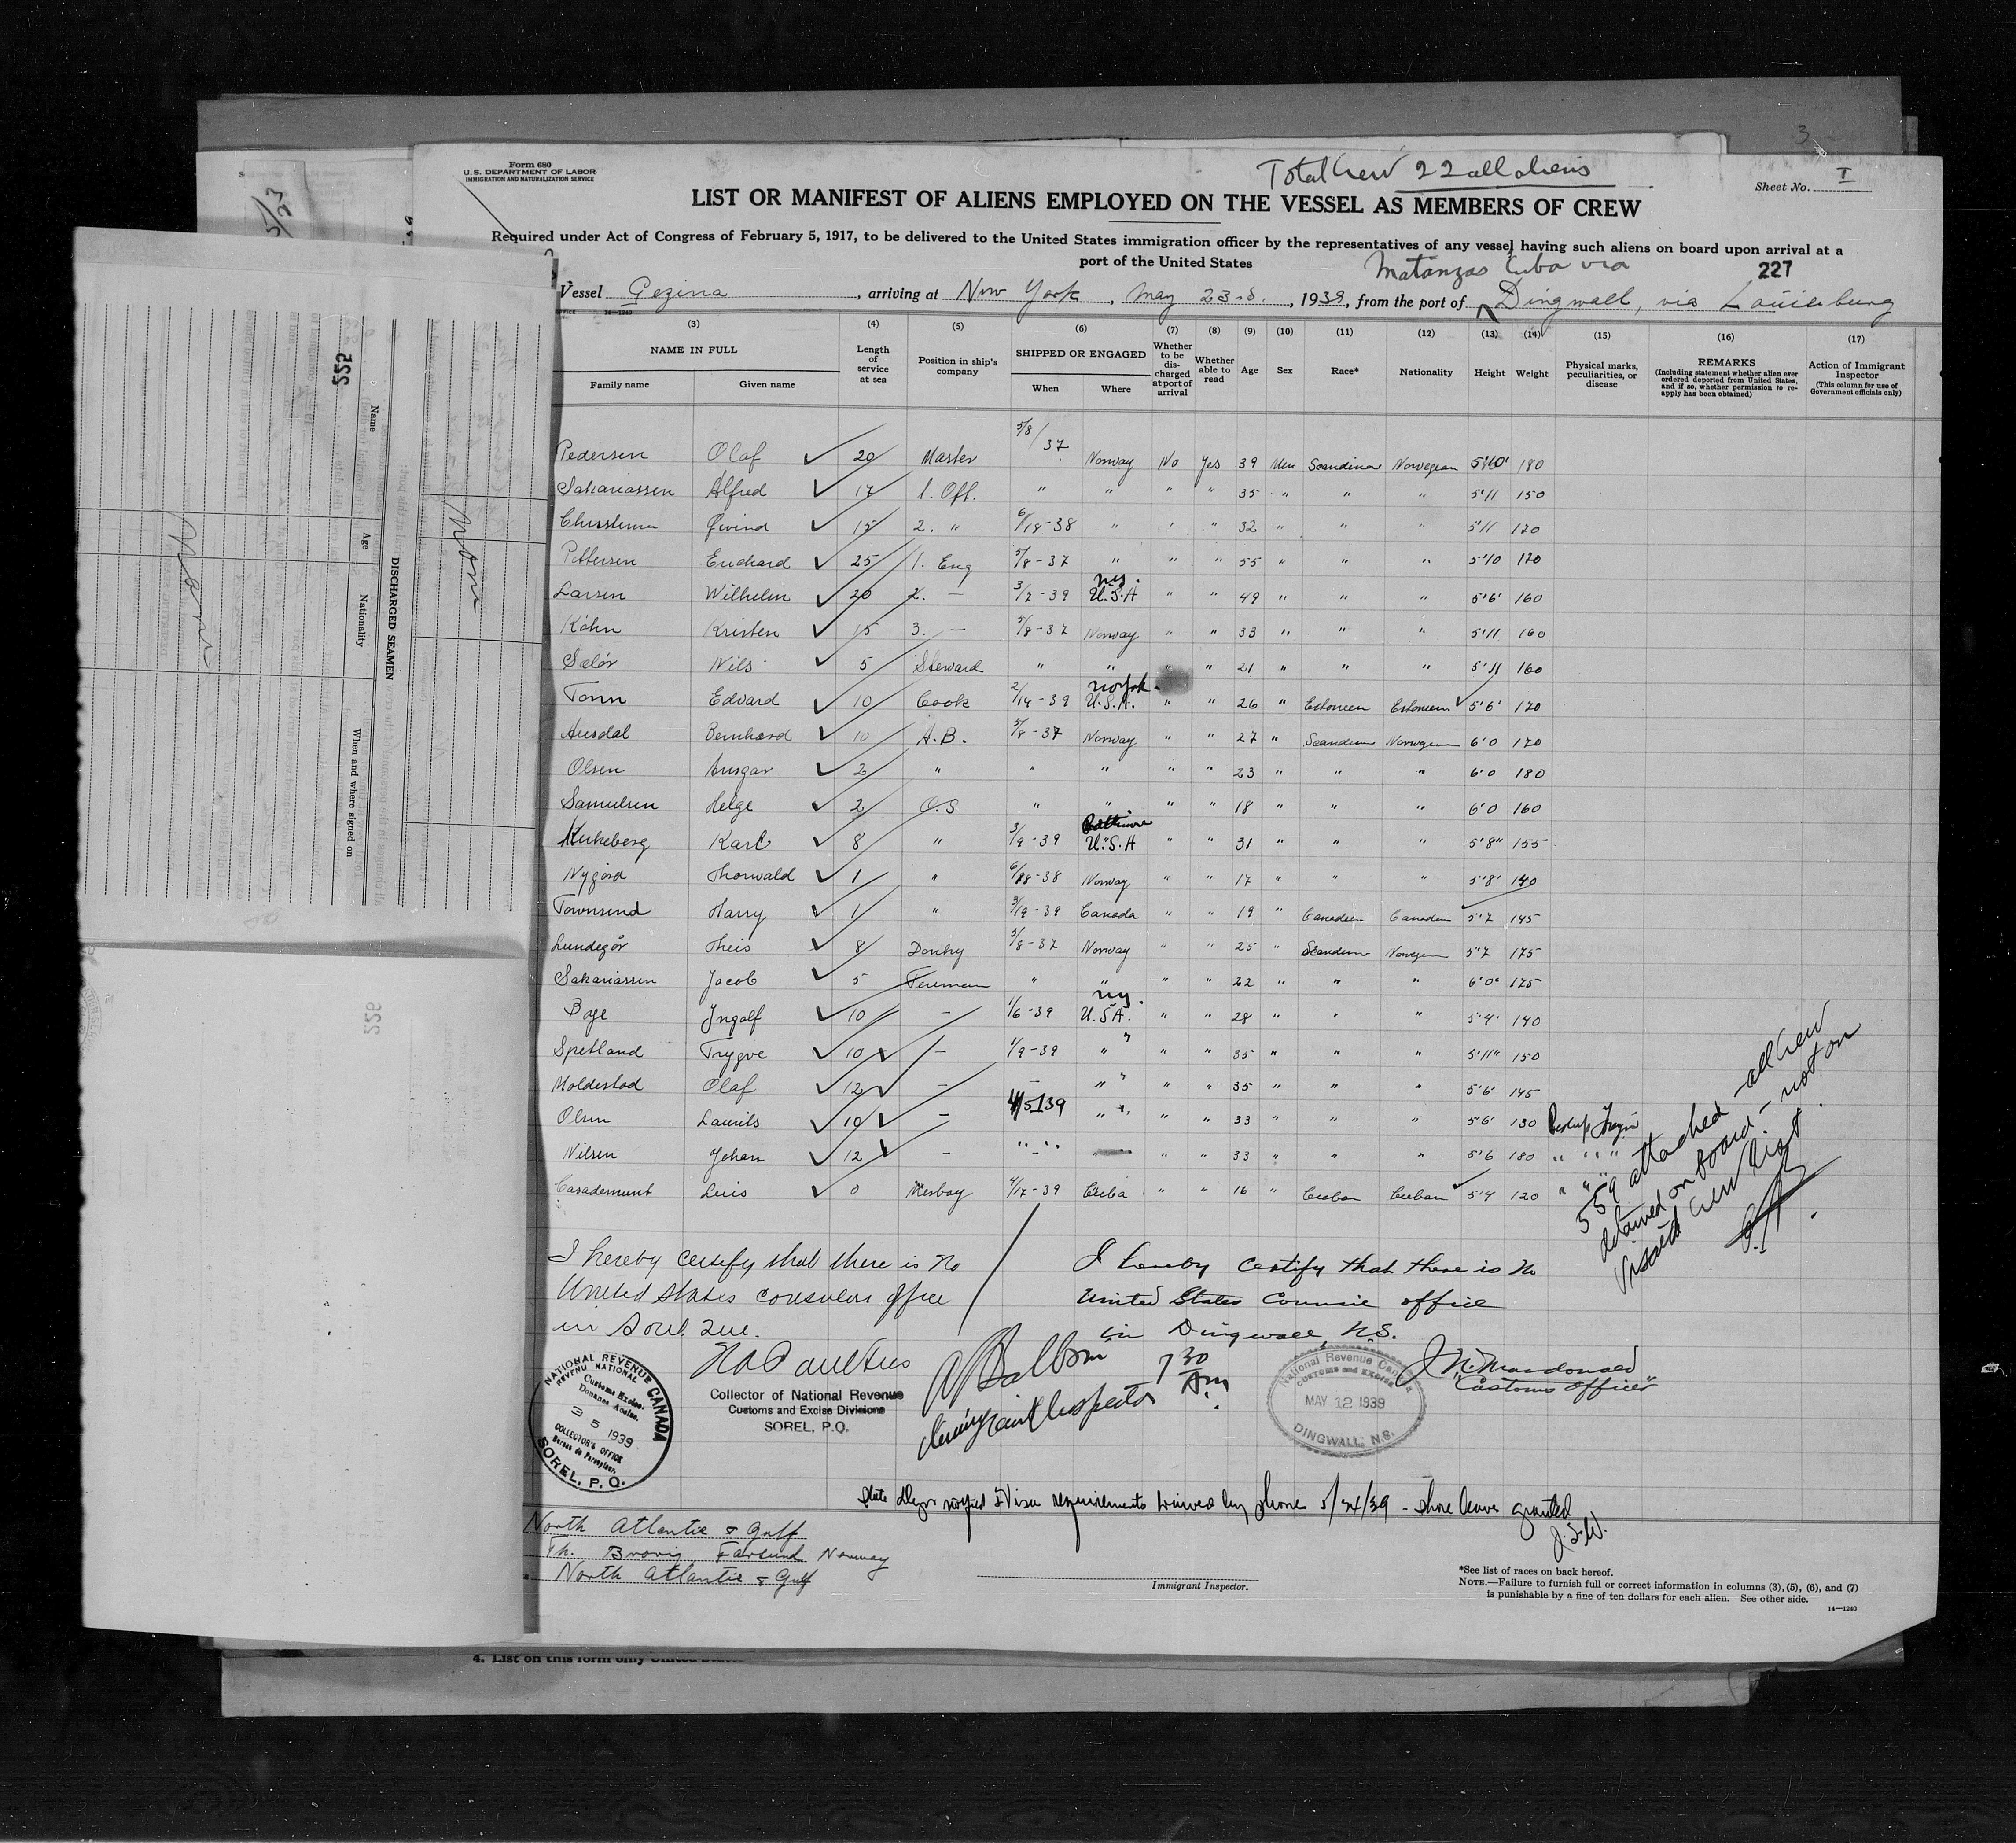 3
Form 680
U.S. DEPARTMENT OF LABOR
IMMIGRATION AND NATURALIZATION SERVICE
Total Crew 22 all aliens
Sheet No. I
LIST OR MANIFEST OF ALIENS EMPLOYED ON THE VESSEL AS MEMBERS OF CREW
Required under Act of Congress of February 5, 1917, to be delivered to the United States immigration officer by the representatives of any vessel having such aliens on board upon arrival at a
port of the United States
Matanzas Cuba via
227
Vessel Gezina, arriving at New York, May 23rd., 1939, from the port of Dingwall, via Louisburg
14—1240
(3) (4) (5) (6) (7) (8) (9) (10) (11) (12) (13) (14) (15) (16) (17)
NAME IN FULL Length of service at sea Position in ship's company SHIPPED OR ENGAGED Whether to be discharged at port of arrival Whether able to read Age Sex Race* Nationality Height Weight Physical marks, peculiarities, or disease REMARKS (Including statement whether alien ever ordered deported from United States, and if so, whether permission to reapply has been obtained) Action of Immigrant Inspector (This column for use of Government officials only)
Family name Given name When Where
Pedersen Olaf 20 Master 5/8/37 Norway No Yes 39 Norwegian 5'10' 180
Sakariassen Alfred 17 1. Off. " " " " 35 " " " 5'11 150
Øivind 15 2. " 6/18-38 " " " 32 " " " 5'11 170
Pettersen 25 1. Eng 5/8-37 " " " 55 " " " 5'10 170
Larsen Wilhelm 20 2. — 3/7-39 U.S.A " " 49 " " " 5'6' 160
Køhn Kristen 15 3. — 5/8-37 Norway " " 33 " " " 5'11 160
Nils 5 Steward " " " " 21 " " " 5'11 160
Norfolk
Edvard 10 Cook 2/14-39 U.S.A. " " 26 " 5'6' 170
Ausdal Bernhard 10 A.B. 5/8-37 Norway " " 27 " 6'0 170
Olsen Ansgar 2 " " " " " 23 " " " 6'0 180
Samuelsen Helge 2 O.S " " " " 18 " " " 6'0 160
Baltimore
Karl 8 " 3/9-39 U.S.A " " 31 " " " 5'8" 155
Nygård Thorwald 1 " 6/18-38 Norway " " 17 " " " 5'8' 140
Townsend Harry 1 " Canada " " 19 " 5'7 145
Lundegår Theis 8 Donky 5/8-37 Norway " " 25 " 5'7 175
Sakariassen Jacob 5 Fireman " " " " 22 " " " 6'0" 175
N.Y.
Boye Ingolf 10 — 1/6-39 U.S.A. " " 28 " " " 5'9' 140
Spetland Trygve 10 — 1/9-39 " " " 35 " " " 5'11" 150
Moldestad Olaf 12 — — " " " 35 " " " 5'6' 145
Olsen Laurits 10 — 4/5/39 " " " 33 " " " 5'6' 130
Nilsen Johan 12 — " " " " 33 " " " 5'6 180 " " "
Casadement Luis 0 Messboy 4/17-39 Cuba " " 16 " Cuban Cuban 5'4 120 " " "
559 attached - all crew
detained on board - not on
visaed crew list.
I hereby certify that there is no
United States consular office
in Sorel Que.
I hereby certify that there is no
United States Consul office
in Dingwall, N.S.
Collector of National Revenue
Customs and Excise Divisions
SOREL, P.Q.
Immigrant Inspector
7 30
A.M.
J. N. Macdonald
Customs Officer
NATIONAL REVENUE CANADA
REVENU NATIONAL
Customs Excise.
Douanes Accise.
3 5 1939
COLLECTOR'S OFFICE
Bureau du Percepteur
SOREL, P.Q.
National Revenue Canada
CUSTOMS AND EXCISE
MAY 12 1939
DINGWALL, N.S.
State Dept notified & Visa requirements waived by phone 5/24/39 - shore leave granted
J.S.W.
North Atlantic & Gulf
Th. Brovig Farsund Norway
North Atlantic & Gulf
Immigrant Inspector.
*See list of races on back hereof.
NOTE.—Failure to furnish full or correct information in columns (3), (5), (6), and (7)
is punishable by a fine of ten dollars for each alien. See other side.
14—1240
5/23
225
Name
Age
Nationality
When and where signed on
DISCHARGED SEAMEN
None
None
226
4. List on this form only United States